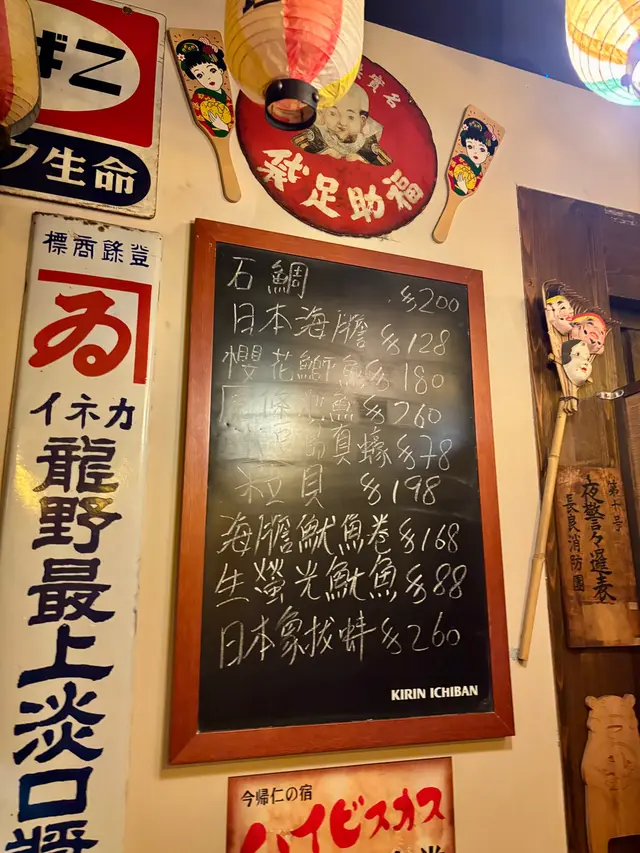 ギニ
ク生命
登録商標
ゐ
カネイ
龍野最上淡口醬
福助足袋
石鯛 $200
日本海膽 $128
櫻花鰤魚 $180
魚 $260
真蠔 $78
粒貝 $198
海膽魷魚卷 $168
生螢光魷魚 $88
日本象拔蚌 $260
KIRIN ICHIBAN
第十号
夜警々邏表
長良消防團
今帰仁の宿
ハイビスカス